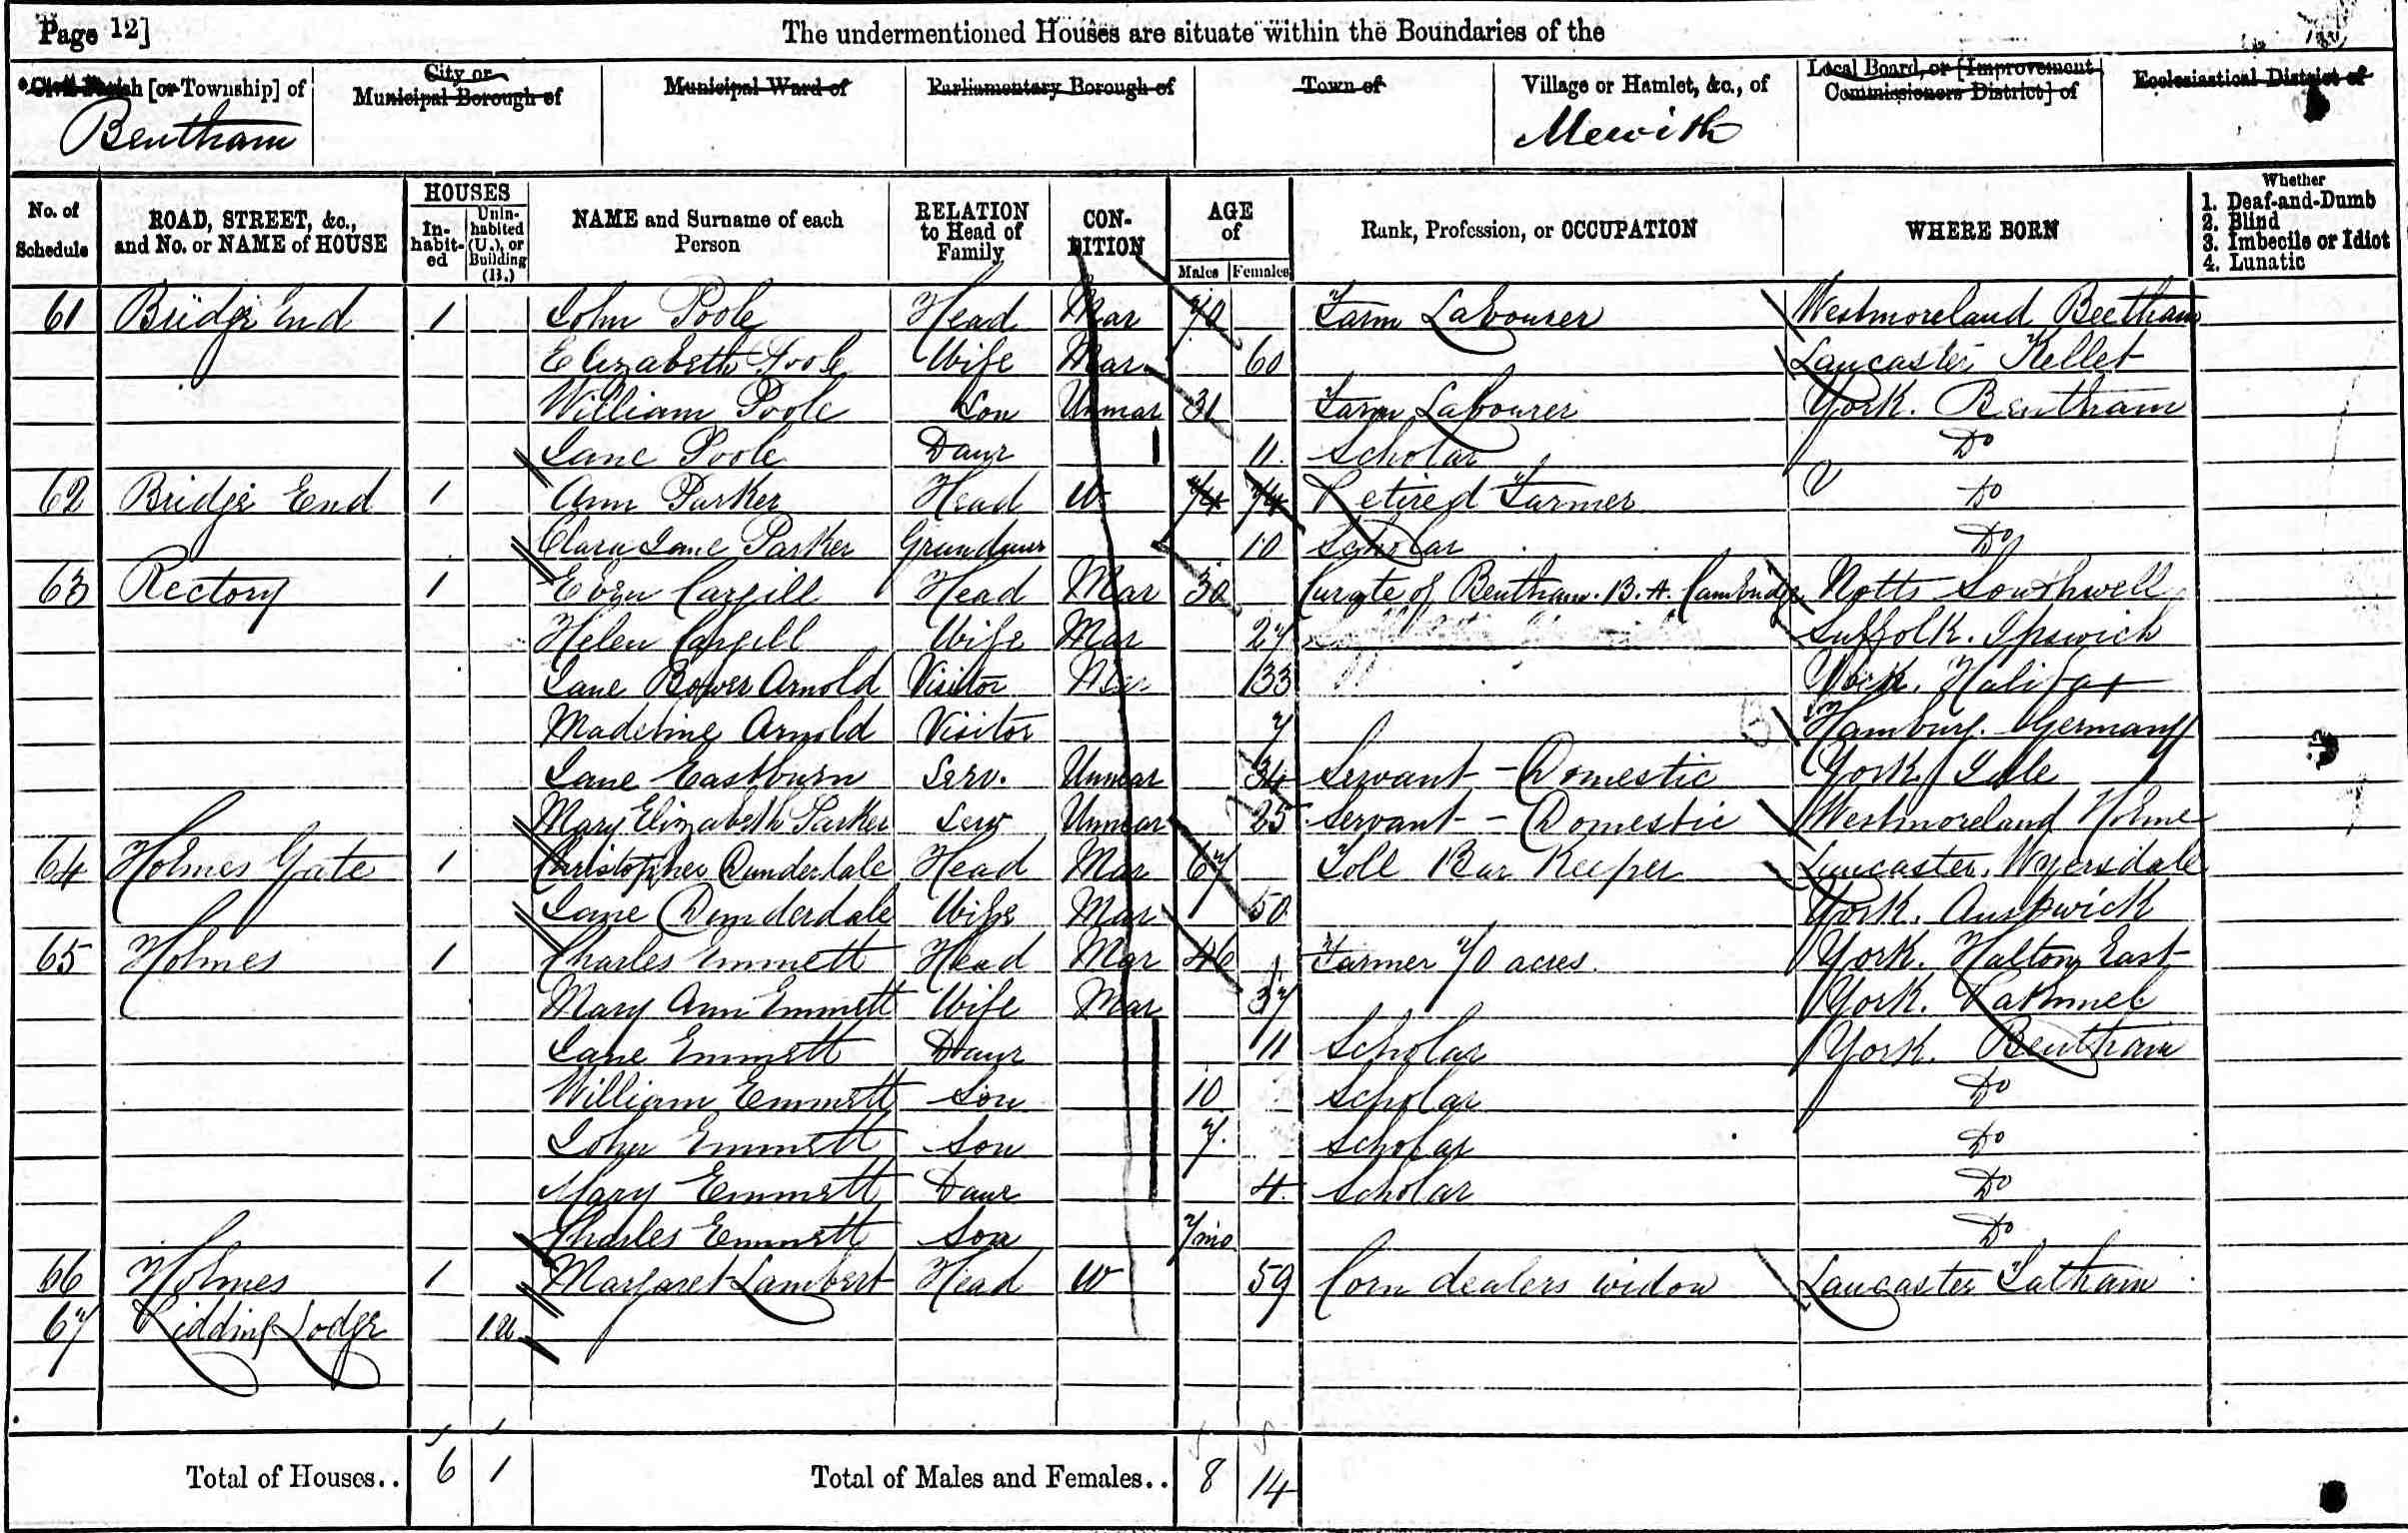 Page 12]
The undermentioned Houses are situate within the Boundaries of the
Civil Parish [or Township] of City or Municipal Borough of Municipal Ward of Parliamentary Borough of Town of Village or Hamlet, &c., of Local Board, or [Improvement Commissioners District] of Ecclesiastical District of
Bentham Mewith
No. of Schedule ROAD, STREET, &c., and No. or NAME of HOUSE HOUSES In-habit-ed Unin-habited (U.), or Building (B.) NAME and Surname of each Person RELATION to Head of Family CON-DITION AGE of Males Females Rank, Profession, or OCCUPATION WHERE BORN Whether 1. Deaf-and-Dumb 2. Blind 3. Imbecile or Idiot 4. Lunatic
61 Bridge End 1 John Poole Head Mar 70 Farm Labourer Westmoreland Beetham
Elizabeth Poole Wife Mar 60 Lancaster Kellet
William Poole Son Unmar 31 Farm Labourer York. Bentham
Jane Poole Daur 11 Scholar Do
62 Bridge End 1 Ann Parker Head W 74 74 Retired Farmer Do
Clara Jane Parker Grandaur 10 Scholar Do
63 Rectory 1 Cargill Head Mar 30 Curate of Bentham. B.A. Cambridge Notts Southwell
Helen Cargill Wife Mar 27 Suffolk. Ipswich
Jane Bower Arnold Visitor Mar 33 York. Halifax
Madeline Arnold Visitor 7 Hamburg. Germany
Jane Eastburn Serv. Unmar 34 Servant - Domestic York Idle
Mary Elizabeth Parker Serv Unmar 25 Servant - Domestic Westmoreland Holme
64 Holmes Gate 1 Christopher Dunderdale Head Mar 67 Toll Bar Keeper Lancaster. Wyersdale
Jane Dunderdale Wife Mar 50 York. Austwick
65 Holmes 1 Charles Emmett Head Mar 46 Farmer 70 acres. York. Halton East
Mary Ann Emmett Wife Mar 37 York. Rathmel
Jane Emmett Daur 11 Scholar York. Bentham
William Emmett Son 10 Scholar Do
John Emmett Son 7 Scholar Do
Mary Emmett Daur 4 Scholar Do
Charles Emmett Son 7mo Do
66 Holmes 1 Margaret Lambert Head W 59 Corn dealers widow Lancaster Tatham
67 Ridding Lodge 1 U
Total of Houses.. 6 1 Total of Males and Females.. 8 14